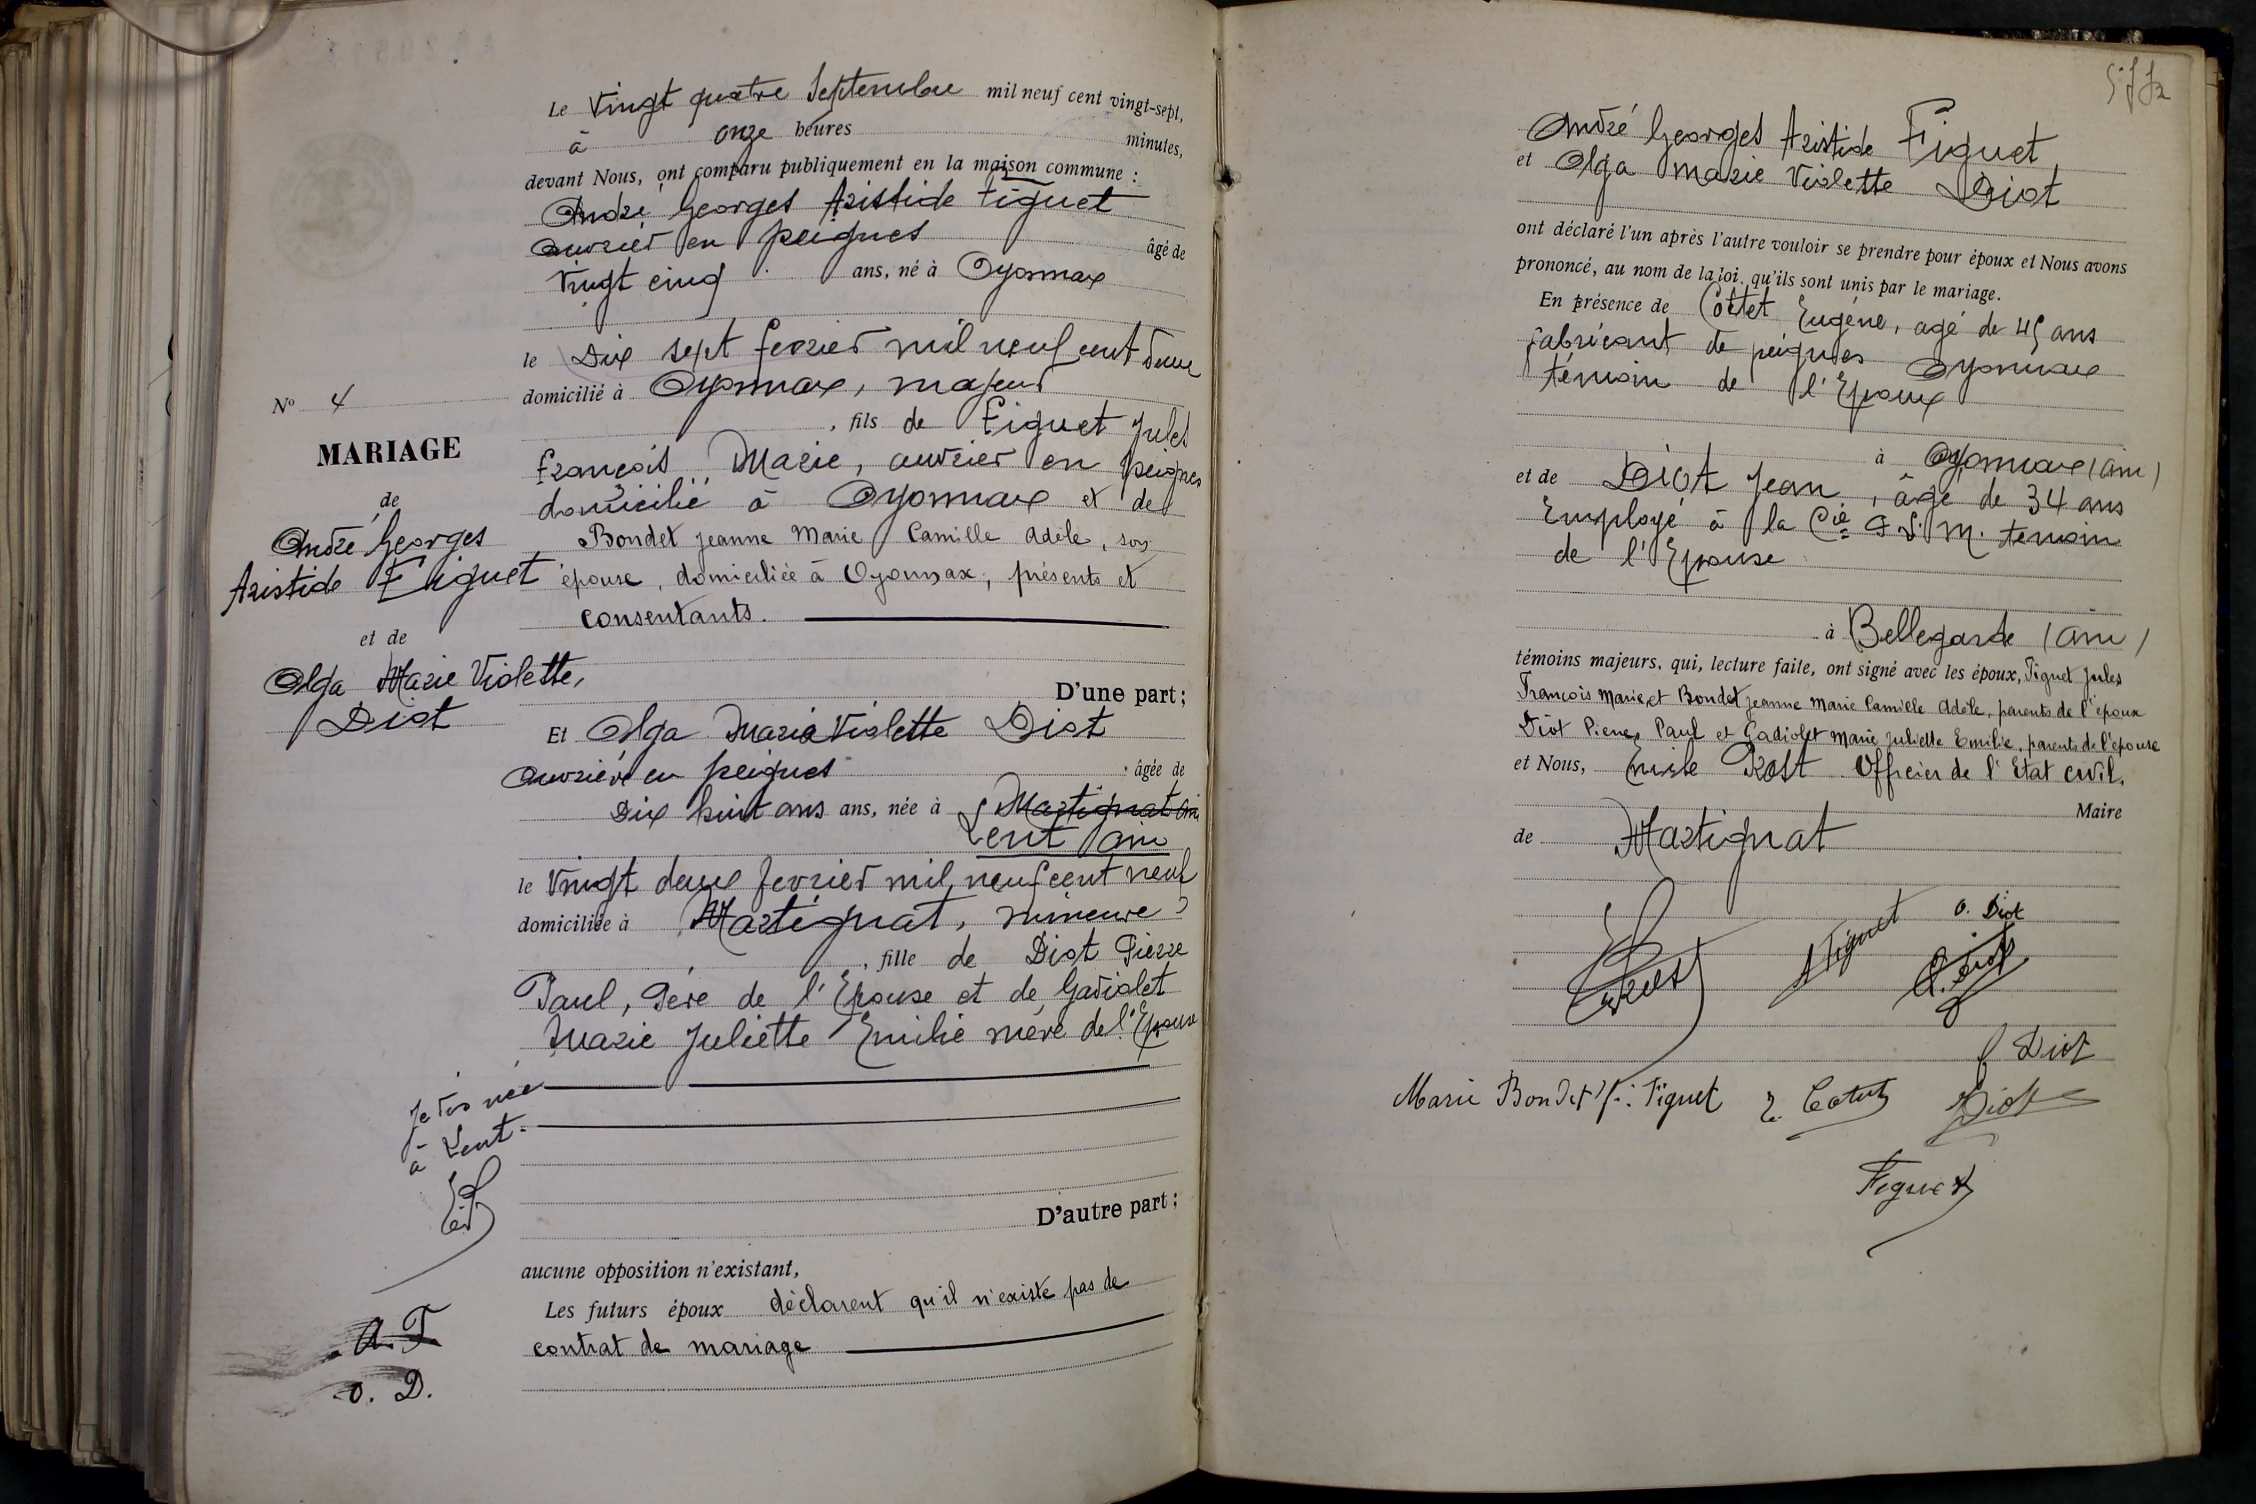 Le Vingt quatre Septembre mil neuf cent vingt-sept,
à onze heures minutes,
devant Nous, ont comparu publiquement en la maison commune :
André Georges Aristide Figuet
ouvrier en peignes âgé de
Vingt cinq ans, né à Oyonnax
le Dix sept fevrier mil neuf cent deux
domicilié à Oyonnax, majeur
, fils de Figuet Jules
François Marie, ouvrier en peignes
domicilié à Oyonnax et de
Bondet Jeanne Marie Camille Adèle, son
épouse, domiciliée à Oyonnax, présents et
consentants.
D'une part ;
No 4
MARIAGE
de
André Georges
Aristide Figuet
et de
Olga Marie Violette,
Diot
Et Olga Marie Violette Diot
ouvrière en peignes âgée de
Dix huit ans ans, née à Martignat Ain
Lent Ain
le Vingt deux fevrier mil neuf cent neuf
domiciliée à Martignat, mineure
, fille de Diot Pierre
Paul, Père de l'Epouse et de Gadiolet
Marie Juliette Emilie mère de l'Epouse
née
à Lent.
D'autre part :
aucune opposition n'existant,
Les futurs époux déclarent qu'il n'existe pas de
contrat de mariage
A. F.
O. D.
André Georges Aristide Figuet
et Olga Marie Violette Diot
ont déclaré l'un après l'autre vouloir se prendre pour époux et Nous avons
prononcé, au nom de la loi, qu'ils sont unis par le mariage.
En présence de Cottet Eugène, agé de 45 ans
fabricant de peignes Oyonnax
témoin de l'Epoux
à Oyonnax (Ain)
et de Diot Jean, âgé de 34 ans
Employé à la Cie P. L. M. témoin
de l'Epouse
à Bellegarde (Ain)
témoins majeurs, qui, lecture faite, ont signé avec les époux, Figuet Jules
François Marie et Bondet Jeanne Marie Camille Adèle, parents de l'époux
Diot Pierre Paul et Gadiolet Marie Juliette Emilie, parents de l'épouse
et Nous, Emile Rost Officier de l'Etat civil.
Maire
de Martignat
Rost
A Figuet
O. Diot
O. Diot
Diot
Marie Bondet Figuet
E. Cottet
Diot
Figuet